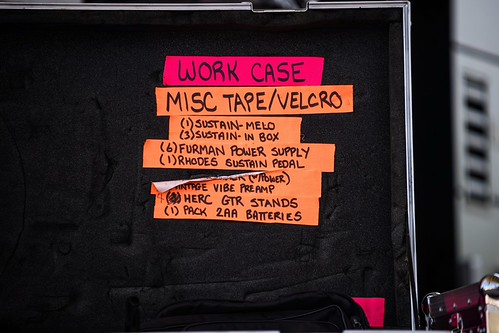 WORK CASE
MISC TAPE/VELCRO
(1) SUSTAIN-MELO
(3) SUSTAIN-IN BOX
(6) FURMAN POWER SUPPLY
(1) RHODES SUSTAIN PEDAL
POWER)
VINTAGE VIBE PREAMP
HERC GTR STANDS
(1) PACK 2AA BATTERIES